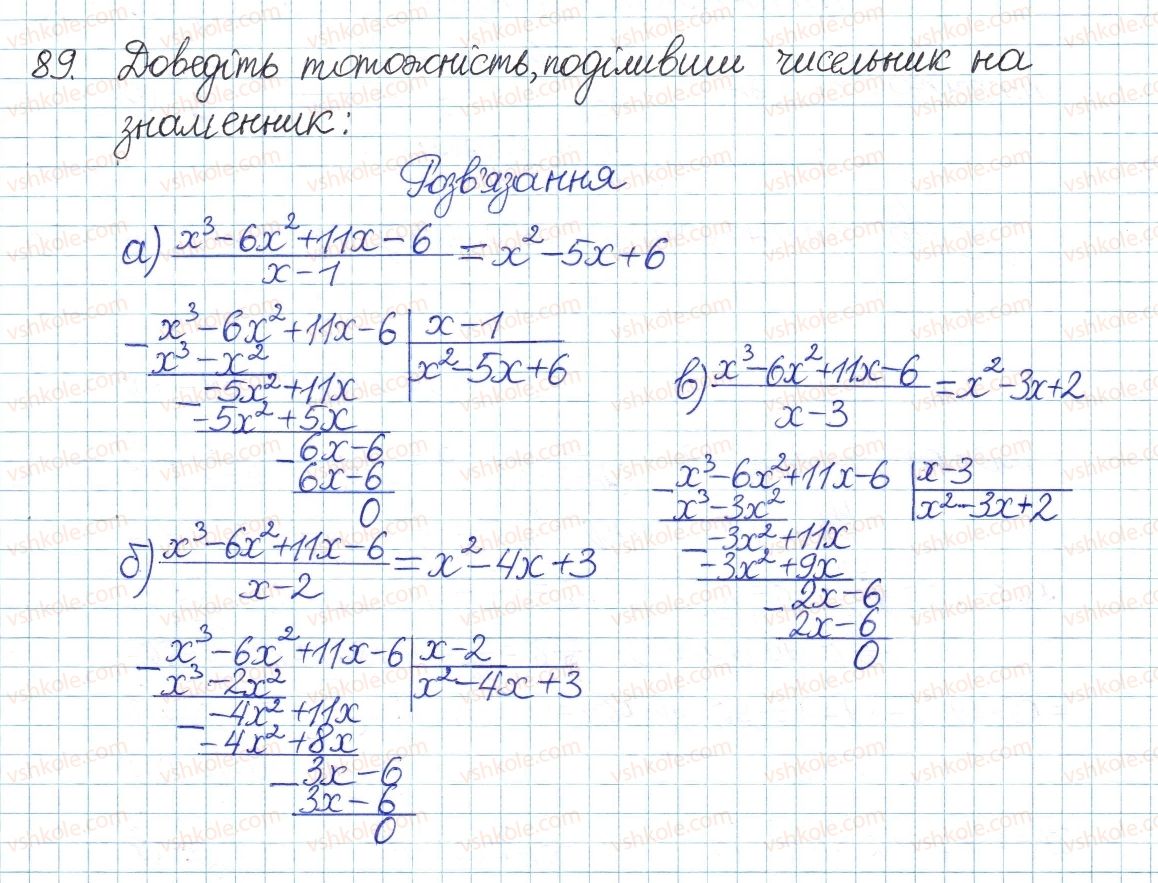 89. Доведіть тотожність, поділивши чисельник на
знаменник:
Розв'язання
а) (x³-6x²+11x-6)/(x-1) = x²-5x+6
x³-6x²+11x-6 | x-1
x³-x² | x²-5x+6
-5x²+11x
-5x²+5x
6x-6
6x-6
0
б) (x³-6x²+11x-6)/(x-2) = x²-4x+3
x³-6x²+11x-6 | x-2
x³-2x² | x²-4x+3
-4x²+11x
-4x²+8x
3x-6
3x-6
0
в) (x³-6x²+11x-6)/(x-3) = x²-3x+2
x³-6x²+11x-6 | x-3
x³-3x² | x²-3x+2
-3x²+11x
-3x²+9x
2x-6
2x-6
0
vshkole.com